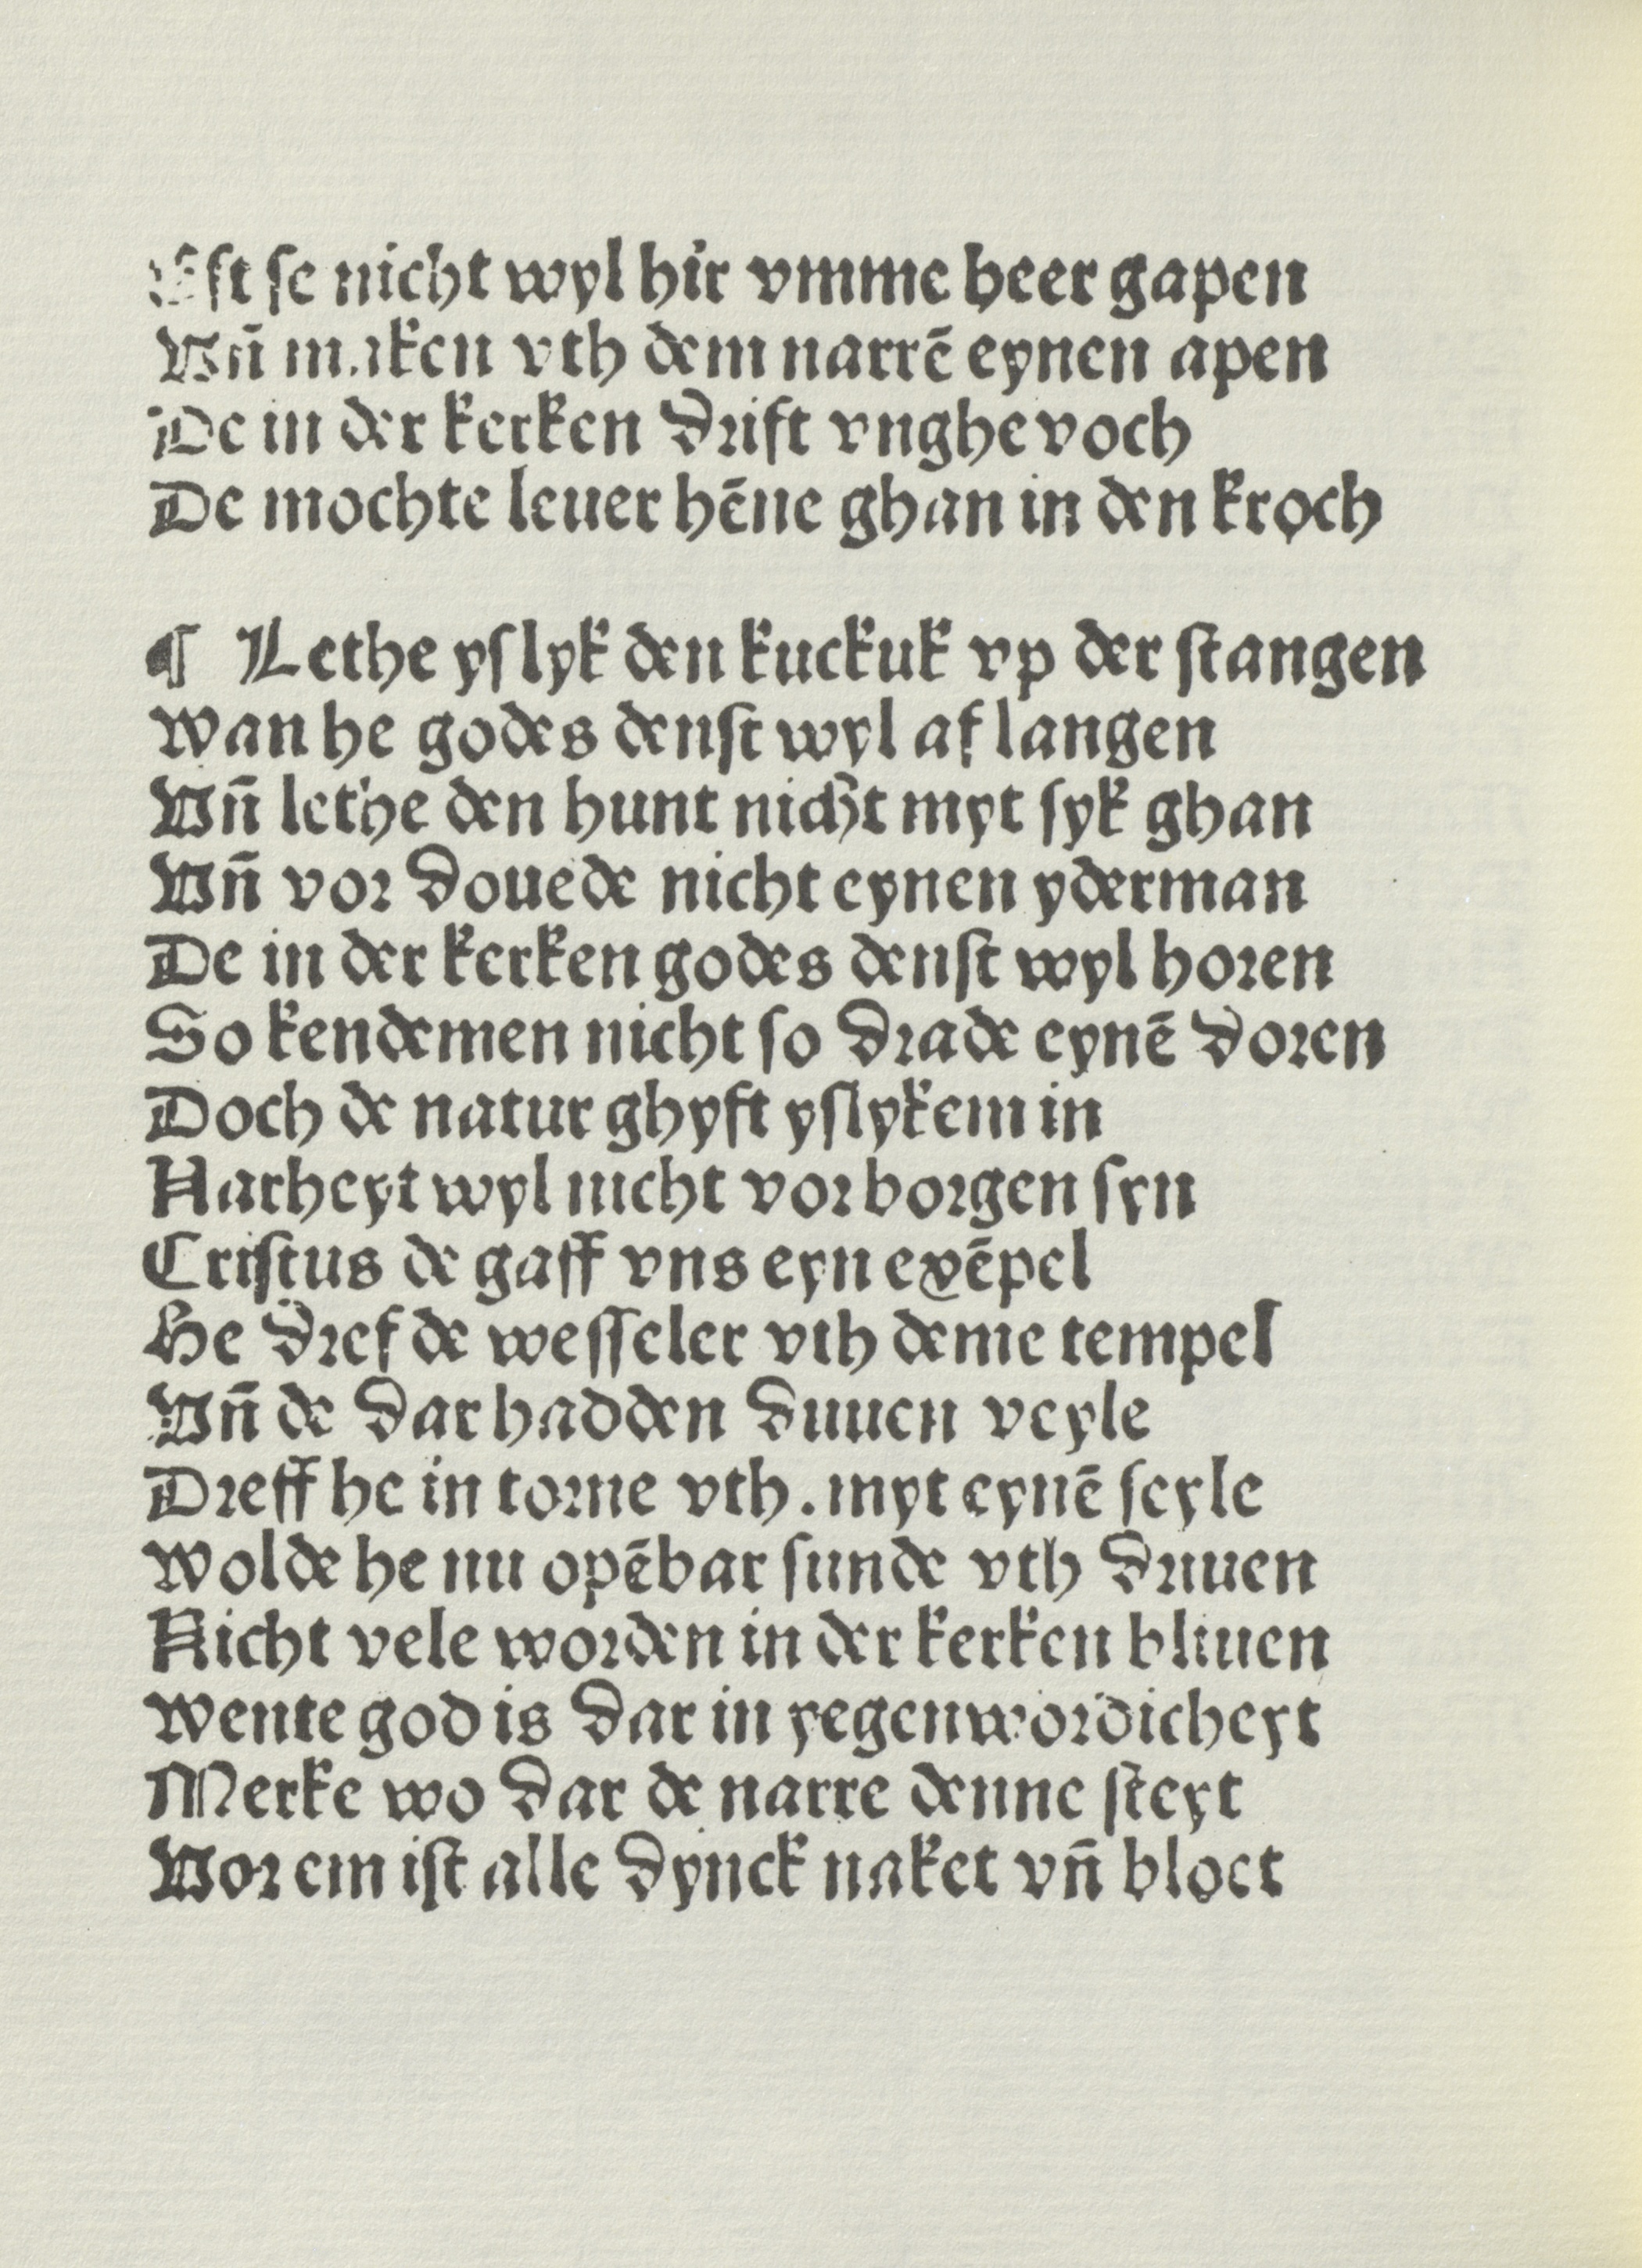 Eft se nicht wyl hir vmme heer gapen
Vn̄ maken vth dem narrē eynen apen
De in der kerken drift vnghevoch
De mochte leuer hēne ghan in den kroch
¶ Lethe yſlyk den kuckuk vp der ſtangen
Wan he godes denſt wyl af langen
Vn̄ lethe den hunt nicht myt ſyk ghan
Vn̄ vor douede nicht eynen yderman
De in der kerken godes denſt wyl horen
So kendemen nicht ſo drade eynē doren
Doch de natur ghyft yſlykem in
Narheyt wyl nicht vorborgen ſyn
Criſtus de gaff vns eyn exēpel
He dref de weſſeler vth deme tempel
Vn̄ de dar hadden duuen veyle
Dreff he in torne vth. myt eynē ſeyle
Wolde he nu opēbar ſunde vth driuen
Nicht vele worden in der kerken bliuen
Wente god is dar in yegenwordicheyt
Merke wo dar de narre denne ſteyt
Vor em iſt alle dynck naket vn̄ bloet